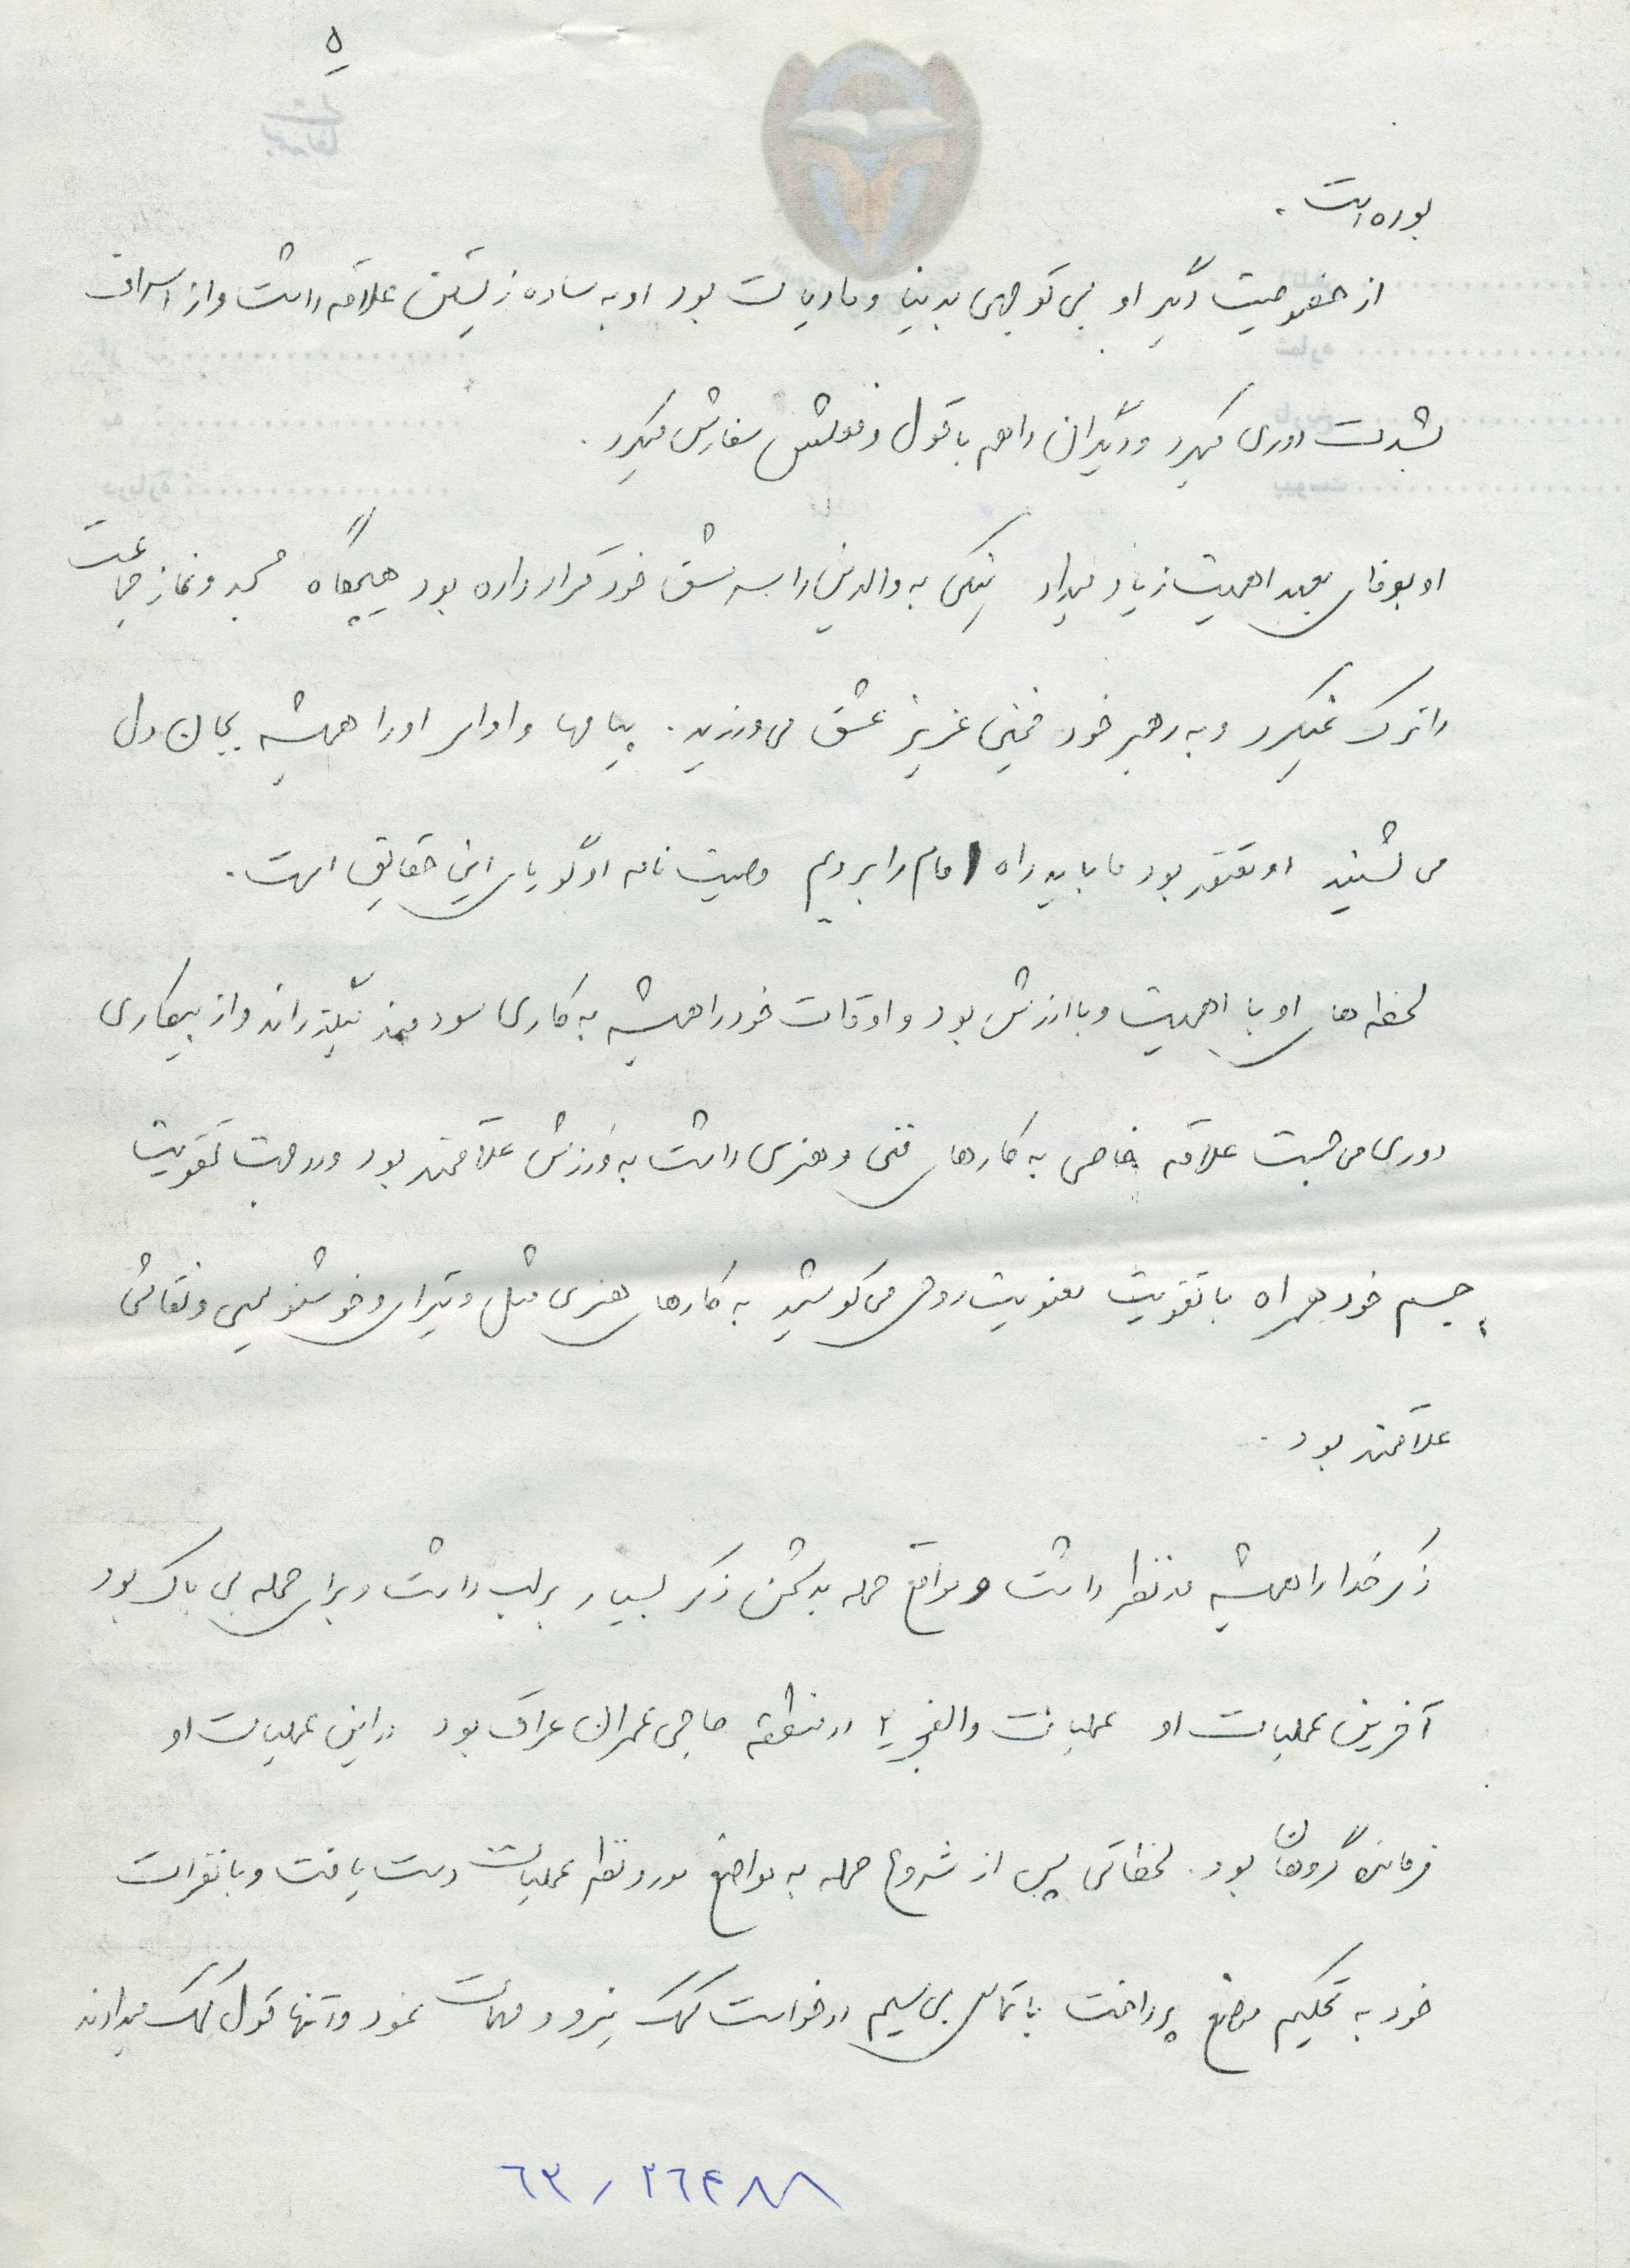 ۵
بوده است .
از خصوصیت دگیر او بی توجهی بدنیا و مادیات بود او به ساده زیستن علاقه داشت و از اسراف
بشدت دوری میکرد و دیگران را هم با قول و فعلش سفارش میکرد .
او بوفای بعهد اهمیت زیاد میداد نیکی به والدین را سر مشق خود قرار داده بود هیچگاه مسجد و نماز جماعت
را ترک نمیکرد و به رهبر خود خمینی عزیز عشق می ورزید . پیامها و اوامر او را همیشه بجان دل
می شنید او معتقد بود ما باید راه امام را برویم وصیت نامه او گویای این حقایق است .
لحظه های او با اهمیت و با ارزش بود و اوقات خود را همیشه به کاری سودمند میگذراند و از بیکاری
دوری می جست علاقه خاصی به کارهای فنی و هنری داشت به ورزش علاقمند بود و در جهت تقویت
جسم خود همراه با تقویت معنویت روحی می کوشید به کارهای هنری مثل و تیراژ و خوشنویسی و نقاشی
علاقمند بود .
ذکر خدا را همیشه مد نظر داشت و مواقع حمله بدشمن ذکر بسیار برلب داشت و برای حمله بی باک بود
آخرین عملیات او عملیات والفجر ۲ در منطقه حاجی عمران عراق بود در این عملیات او
فرمانده گروهان بود . لحظاتی پس از شروع حمله به مواضع مورد نظر عملیات دست یافت و با نفرات
خود به تحکیم مواضع پرداخت با تماس بی سیم درخواست کمک نیرو و مهمات نمود و تنها قول کمک میدادند
۶۳/۲۶۴۸۸